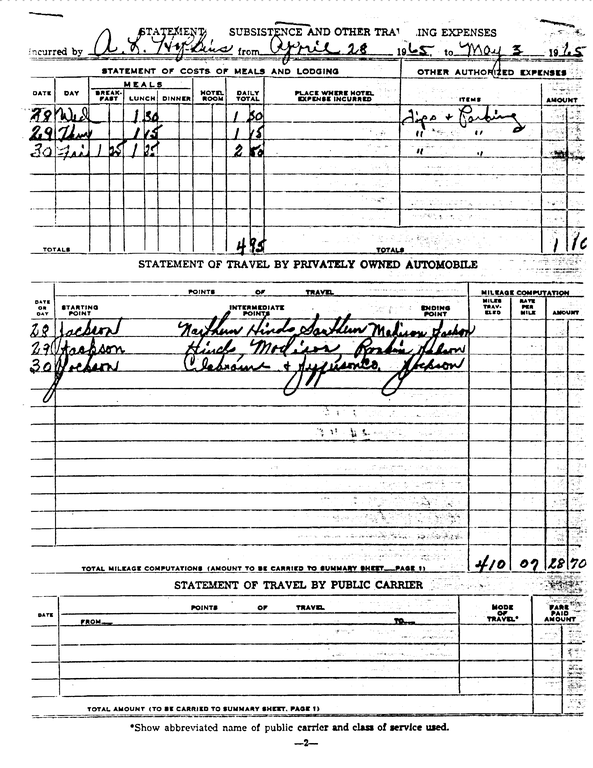 STATEMENT SUBSISTENCE AND OTHER TRA ING EXPENSES
incurred by A. L. Hopkins from April 28 1965 to May 3 1965
STATEMENT OF COSTS OF MEALS AND LODGING OTHER AUTHORIZED EXPENSES
DATE DAY MEALS BREAK-FAST LUNCH DINNER HOTEL ROOM DAILY TOTAL PLACE WHERE HOTEL EXPENSE INCURRED ITEMS AMOUNT
28 Wed 1 30 1 30 Tips + Parking
29 Thu 1 15 1 15 " "
30 Fri 1 25 1 25 2 50 " "
TOTALS 4 95 TOTALS 1 10
STATEMENT OF TRAVEL BY PRIVATELY OWNED AUTOMOBILE
POINTS OF TRAVEL MILEAGE COMPUTATION
DATE OR DAY STARTING POINT INTERMEDIATE POINTS ENDING POINT MILES TRAV-ELED RATE PER MILE AMOUNT
28 Jackson Northern Hinds, Southern Madison Jackson
29 Jackson Hinds Madison Rankin Jackson
30 Jackson Claiborne + Jefferson Co. Jackson
TOTAL MILEAGE COMPUTATIONS (AMOUNT TO BE CARRIED TO SUMMARY SHEET PAGE 1) 410 07 28 70
STATEMENT OF TRAVEL BY PUBLIC CARRIER
DATE POINTS OF TRAVEL MODE OF TRAVEL* FARE PAID AMOUNT
FROM TO
TOTAL AMOUNT (TO BE CARRIED TO SUMMARY SHEET, PAGE 1)
*Show abbreviated name of public carrier and class of service used.
—2—